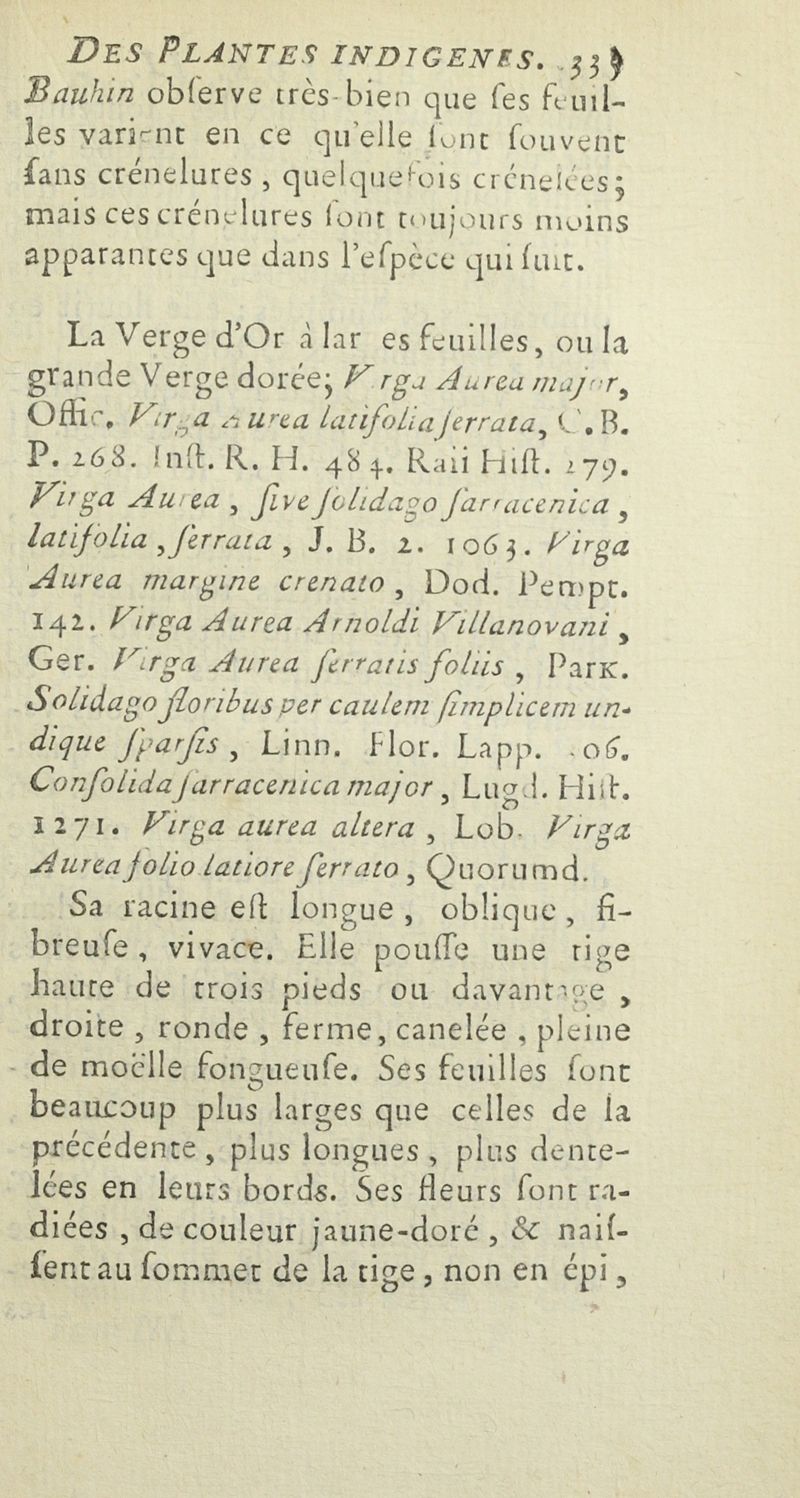 DES PLANTES INDIGENES. 335
Bauhin obſerve très-bien que ſes feuil-
les varient en ce qu'elle ſont ſouvent
ſans crénelures, quelquefois crénelées;
mais ces crénelures ſont toujours moins
apparantes que dans l'eſpèce qui ſuit.
La Verge d'Or à lar es feuilles, ou la
grande Verge dorée; V rga Aurea major,
Offic. Virga Aurea latifolia ſerrata, C. B.
P. 268. Inſt. R. H. 484. Raii Hiſt. 279.
Virga Aurea, ſive ſolidago ſarracenica,
latifolia, ſerrata, J. B. 2. 1063. Virga
Aurea margine crenato, Dod. Pempt.
142. Virga Aurea Arnoldi Villanovani,
Ger. Virga Aurea ſerratis foliis, Park.
Solidago floribus per caulem ſimplicem un-
dique ſparſis, Linn. Flor. Lapp. 06.
Conſolida ſarracenica major, Lugd. Hiſt.
1271. Virga aurea altera, Lob. Virga
Aurea folio latiore ſerrato, Quorumd.
Sa racine eſt longue, oblique, fi-
breuſe, vivace. Elle pouſſe une tige
haute de trois pieds ou davantage,
droite, ronde, ferme, canelée, pleine
de moëlle fongueuſe. Ses feuilles ſont
beaucoup plus larges que celles de la
précédente, plus longues, plus dente-
lées en leurs bords. Ses fleurs ſont ra-
diées, de couleur jaune-doré, & naiſ-
ſent au ſommet de la tige, non en épi,